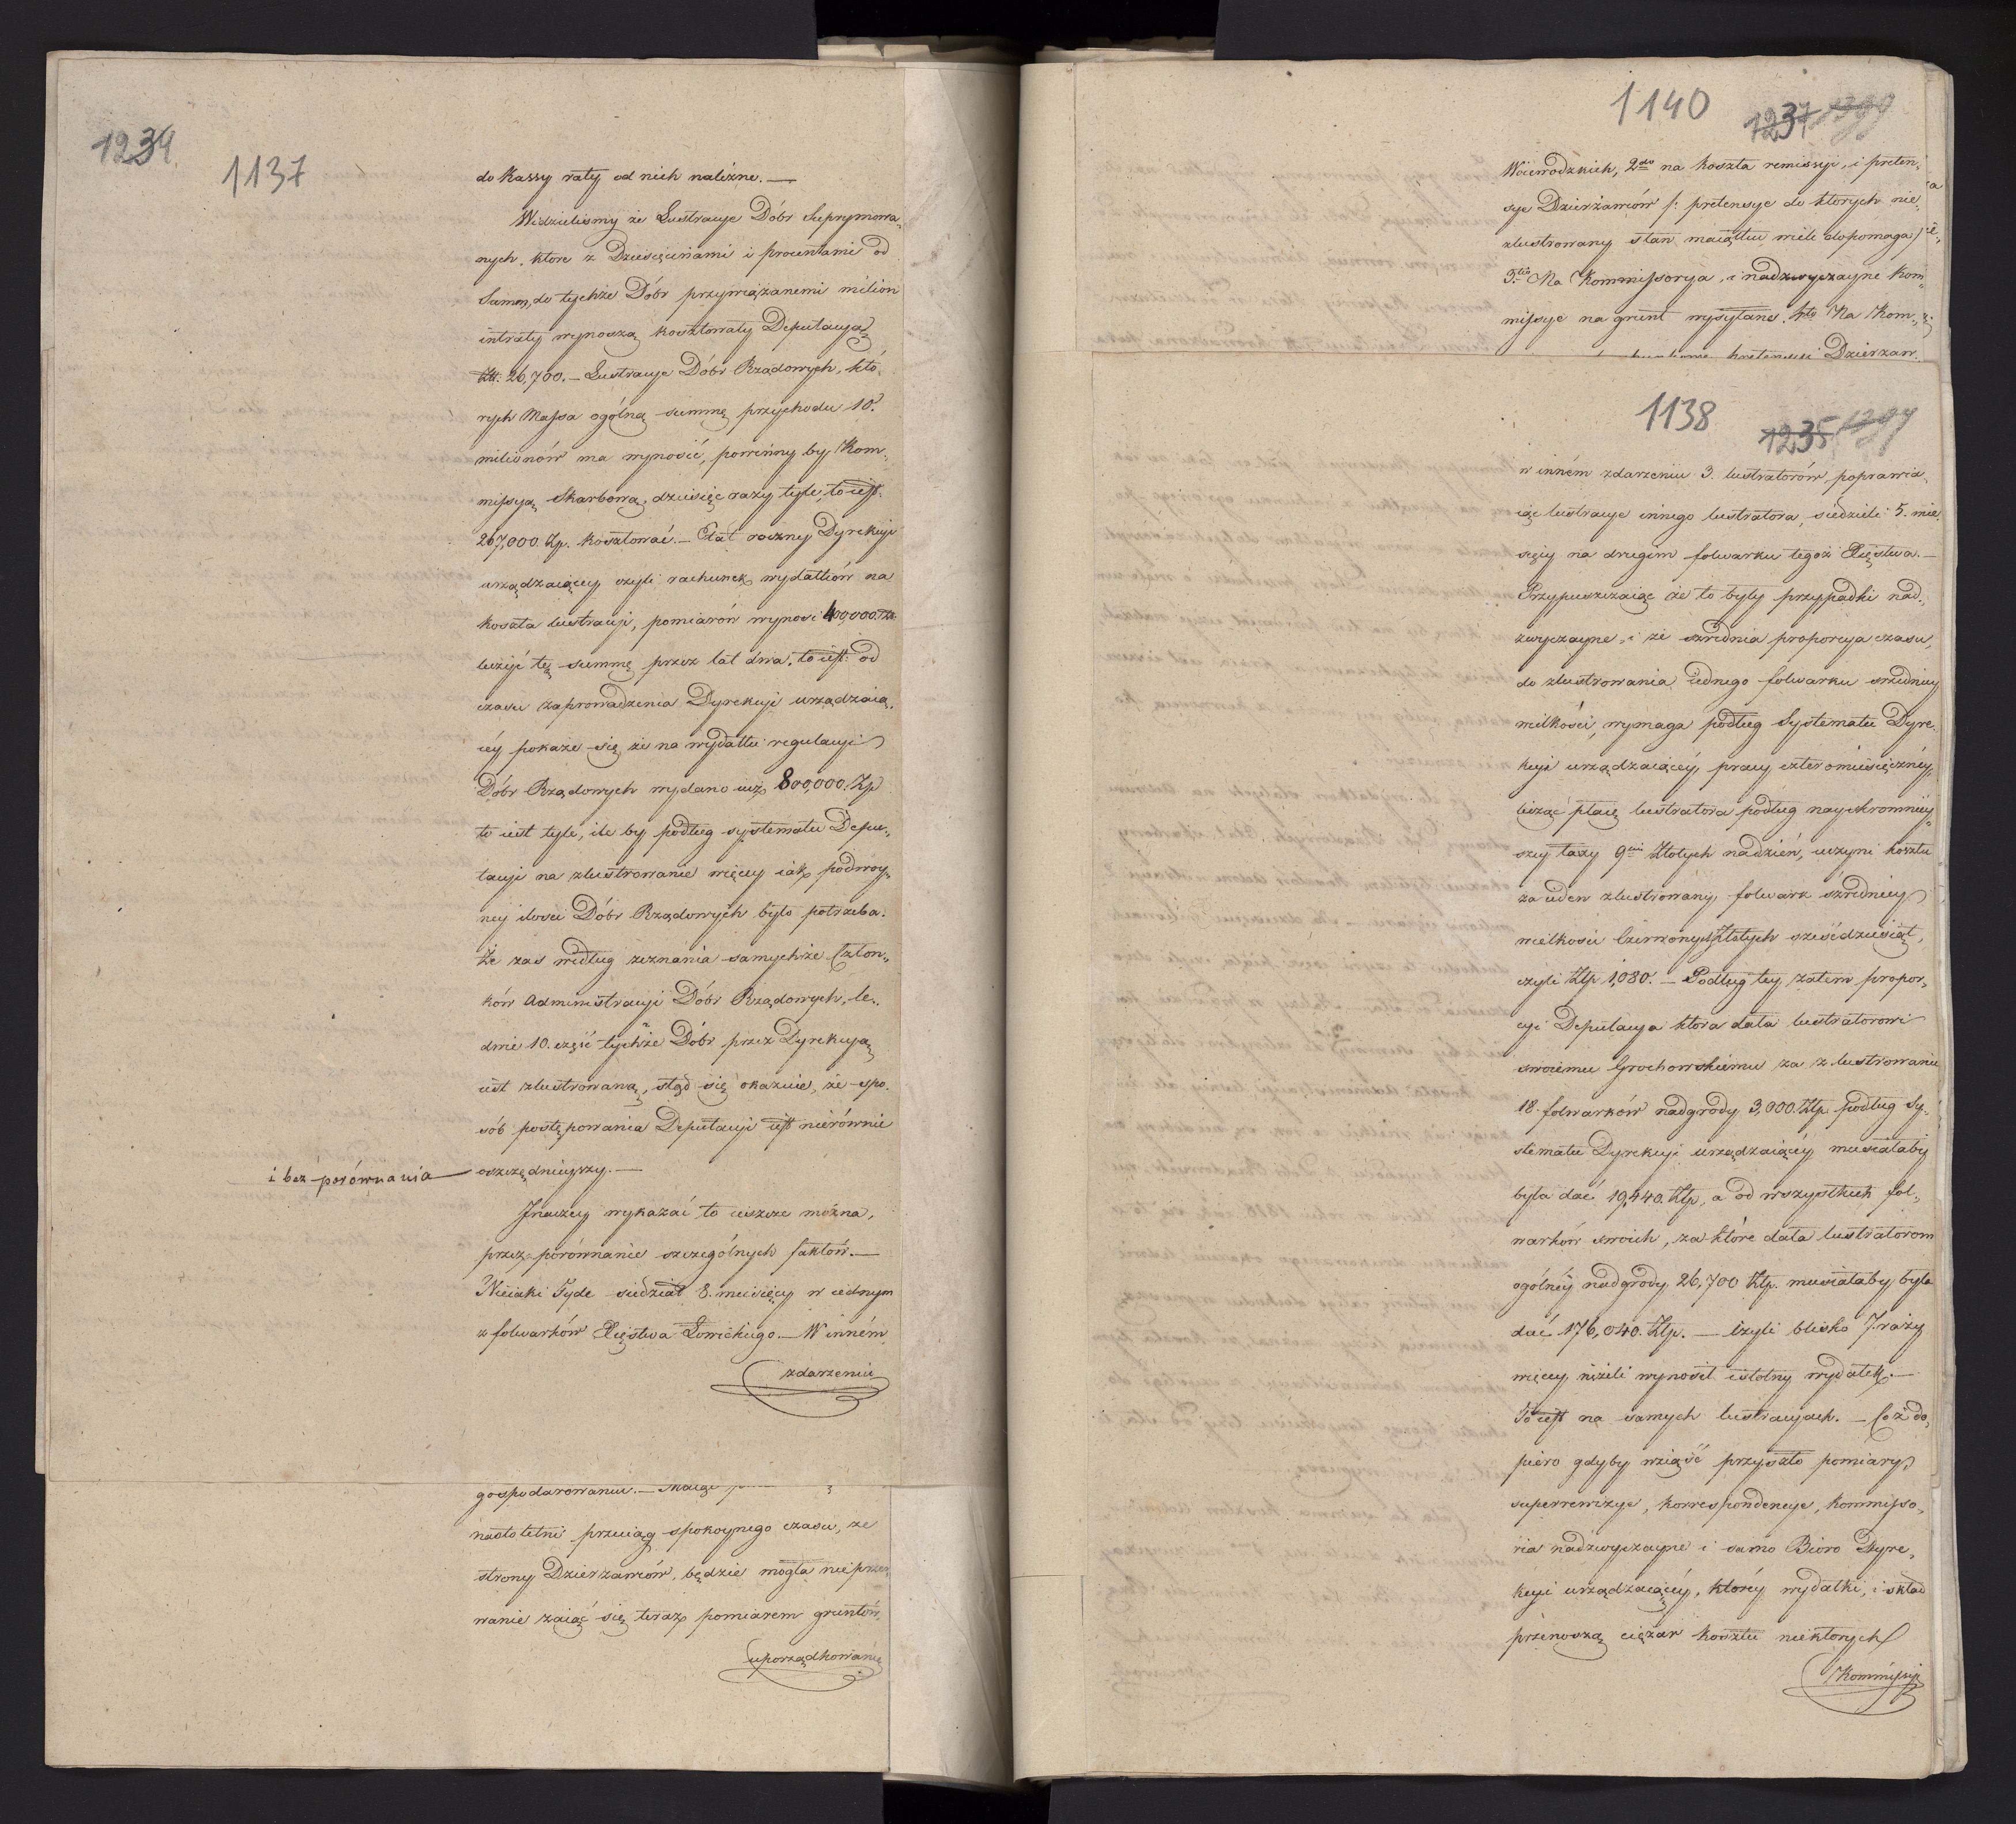 1234
1137
do Kassy raty od nich należne. —
Widzieliśmy że Lustracye Dóbr Suprymowa„
nych, które z Dziesięcinami i procentami od
Summ, do tychże Dóbr przywiązanemi milion
intraty wynoszą kosztowały Deputacyą
Złł: 26,700. — Lustracye Dóbr Rządowych, któ„
rych Massa ogólną summę przychodu 10.
milionów ma wynosić, powinny by Kom„
missyą Skarbową, dziesięć razy tyle, to iest
267,000. Zp. kosztować. — Etat roczny Dyrekcyi
urządzaiącey czyli rachunek wydatków na
koszta lustracyi, pomiarów wynosi 400,000. Za
liczyć tę summę przez lat dwa, to iest: od
czasu zaprowadzenia Dyrekcyi urządzaią„
cey pokaże się że na wydatki regulacyi
Dóbr Rządowych wydano iuż 800,000. Zp
to iest tyle, ile by podług systematu Depu„
tacyi na zlustrowanie więcey iak podwoy„
ney ilosci Dóbr Rządowych było potrzeba.
Że zas według zeznania samychże Człon„
ków Administracyi Dóbr Rządowych, le„
dwie 10. część tychże Dóbr przez Dyrekcyą
iest zlustrowaną, stąd się okazuie, że spo„
sób postępowania Deputacyi iest nierównie
i bez porównania
oszczędnieyszy. —
Inaczey wykazać to ieszcze można,
przez porównanie szczególnych faktów. —
Nieiaki Tyde siedział 8. miesięcy w iednym
z folwarków Xięstwa Łowickiego. — W inném
zdarzeniu
gospodarowaniu. —
nastoletni przeciąg spokoynego czasu, ze
strony Dzierzawców, będzie mogła nieprzer„
wanie zaiąć się teraz pomiarem gruntów,
uporządkowanie
1140
1237
Woiewodzkich, 2do na koszta remissyi, i preten„
sye Dzierżawców /: pretensye do których nie„
zlustrowany stan maiątku wiele dopomaga)
3tio Na Kommissorya, i nadzwyczayne Kom„
missye na grunt wysyłane. 4to Na Kom„
Dzierzaw„
1138
1235
w inném zdarzeniu 3. lustratorów, poprawia„
iąc lustracye innego lustratora, siedzieli 5. mie„
sięcy na drugim folwarku tegoż Xięstwa. —
Przypuszczaiąc że to były przypadki nad„
zwyczayne, i że szrednia proporcya czasu,
do zlustrowania iednego folwarku szredniey
wielkości, wymaga podług Systematu Dyre„
kcyi urządzaiącey, pracy czteromiesięczney,
licząc płacę lustratora podług nayskromniey„
szey taxy 9ciu Złotych nadzień, uczyni kosztu
za ieden zlustrowany folwark szredniey
wielkości Czerwonych Złotych sześćdziesiąt,
czyli Złp 1,080. — Podług tey zatem propor„
cyi Deputacya która dała lustratorowi
swoiemu Grochowskiemu za zlustrowanie
18. folwarków nadgrody 3,000. Złp podług Sy„
stematu Dyrekcyi urządzaiącey musiałaby
była dać 19,440. Złp, a od wszystkich fol„
warków swoich, za które dała lustratorom
ogólnéy nadgrody 26,700 Złp. musiałaby była
dać 176,040. Złp. — Czyli blisko 7. razy
więcey niżeli wynosił istotny wydatek. —
To iest na samych lustracyach. — Coż do„
piero gdyby wziąść przyszło pomiary,
superrewizye, korrespondencye, kommisso„
ria nadzwyczayne i samo Bióro Dyre„
kcyi urządzaiącéy, którey wydatki, i skład
przenoszą ciężar kosztu niektorych
Kommissyi